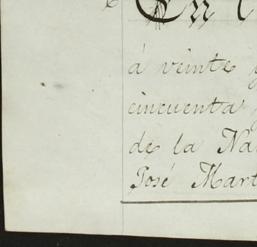 En l
á veinte y
cincuenta y
de la Na
José Mart